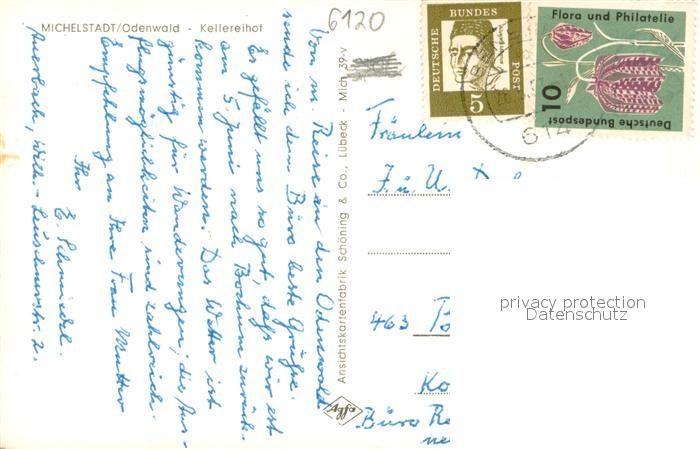 MICHELSTADT/Odenwald - Kellereihof
6120
Von m. Reise in den Odenwald
sende ich dem Büro beste Grüße.
Es gefällt uns so gut, daß wir erst
am 5. Juni nach Bochum zurück-
kommen werden. Das Wetter ist
günstig für Wanderungen; die Aus-
flugsmöglichkeiten sind zahlreich.
Empfehlung an Ihre Frau Mutter
Ihr
E. Schmiedel.
Auerbach, Wilh.-Leuschnerstr. 2.
Ansichtskartenfabrik Schöning & Co., Lübeck - Mich 39-v
Agfa
DEUTSCHE BUNDES POST
5
Flora und Philatelie
10
Deutsche Bundespost
614
Fräulein
J. u. U.
463 B
Ko
Büro Re
ne
privacy protection
Datenschutz